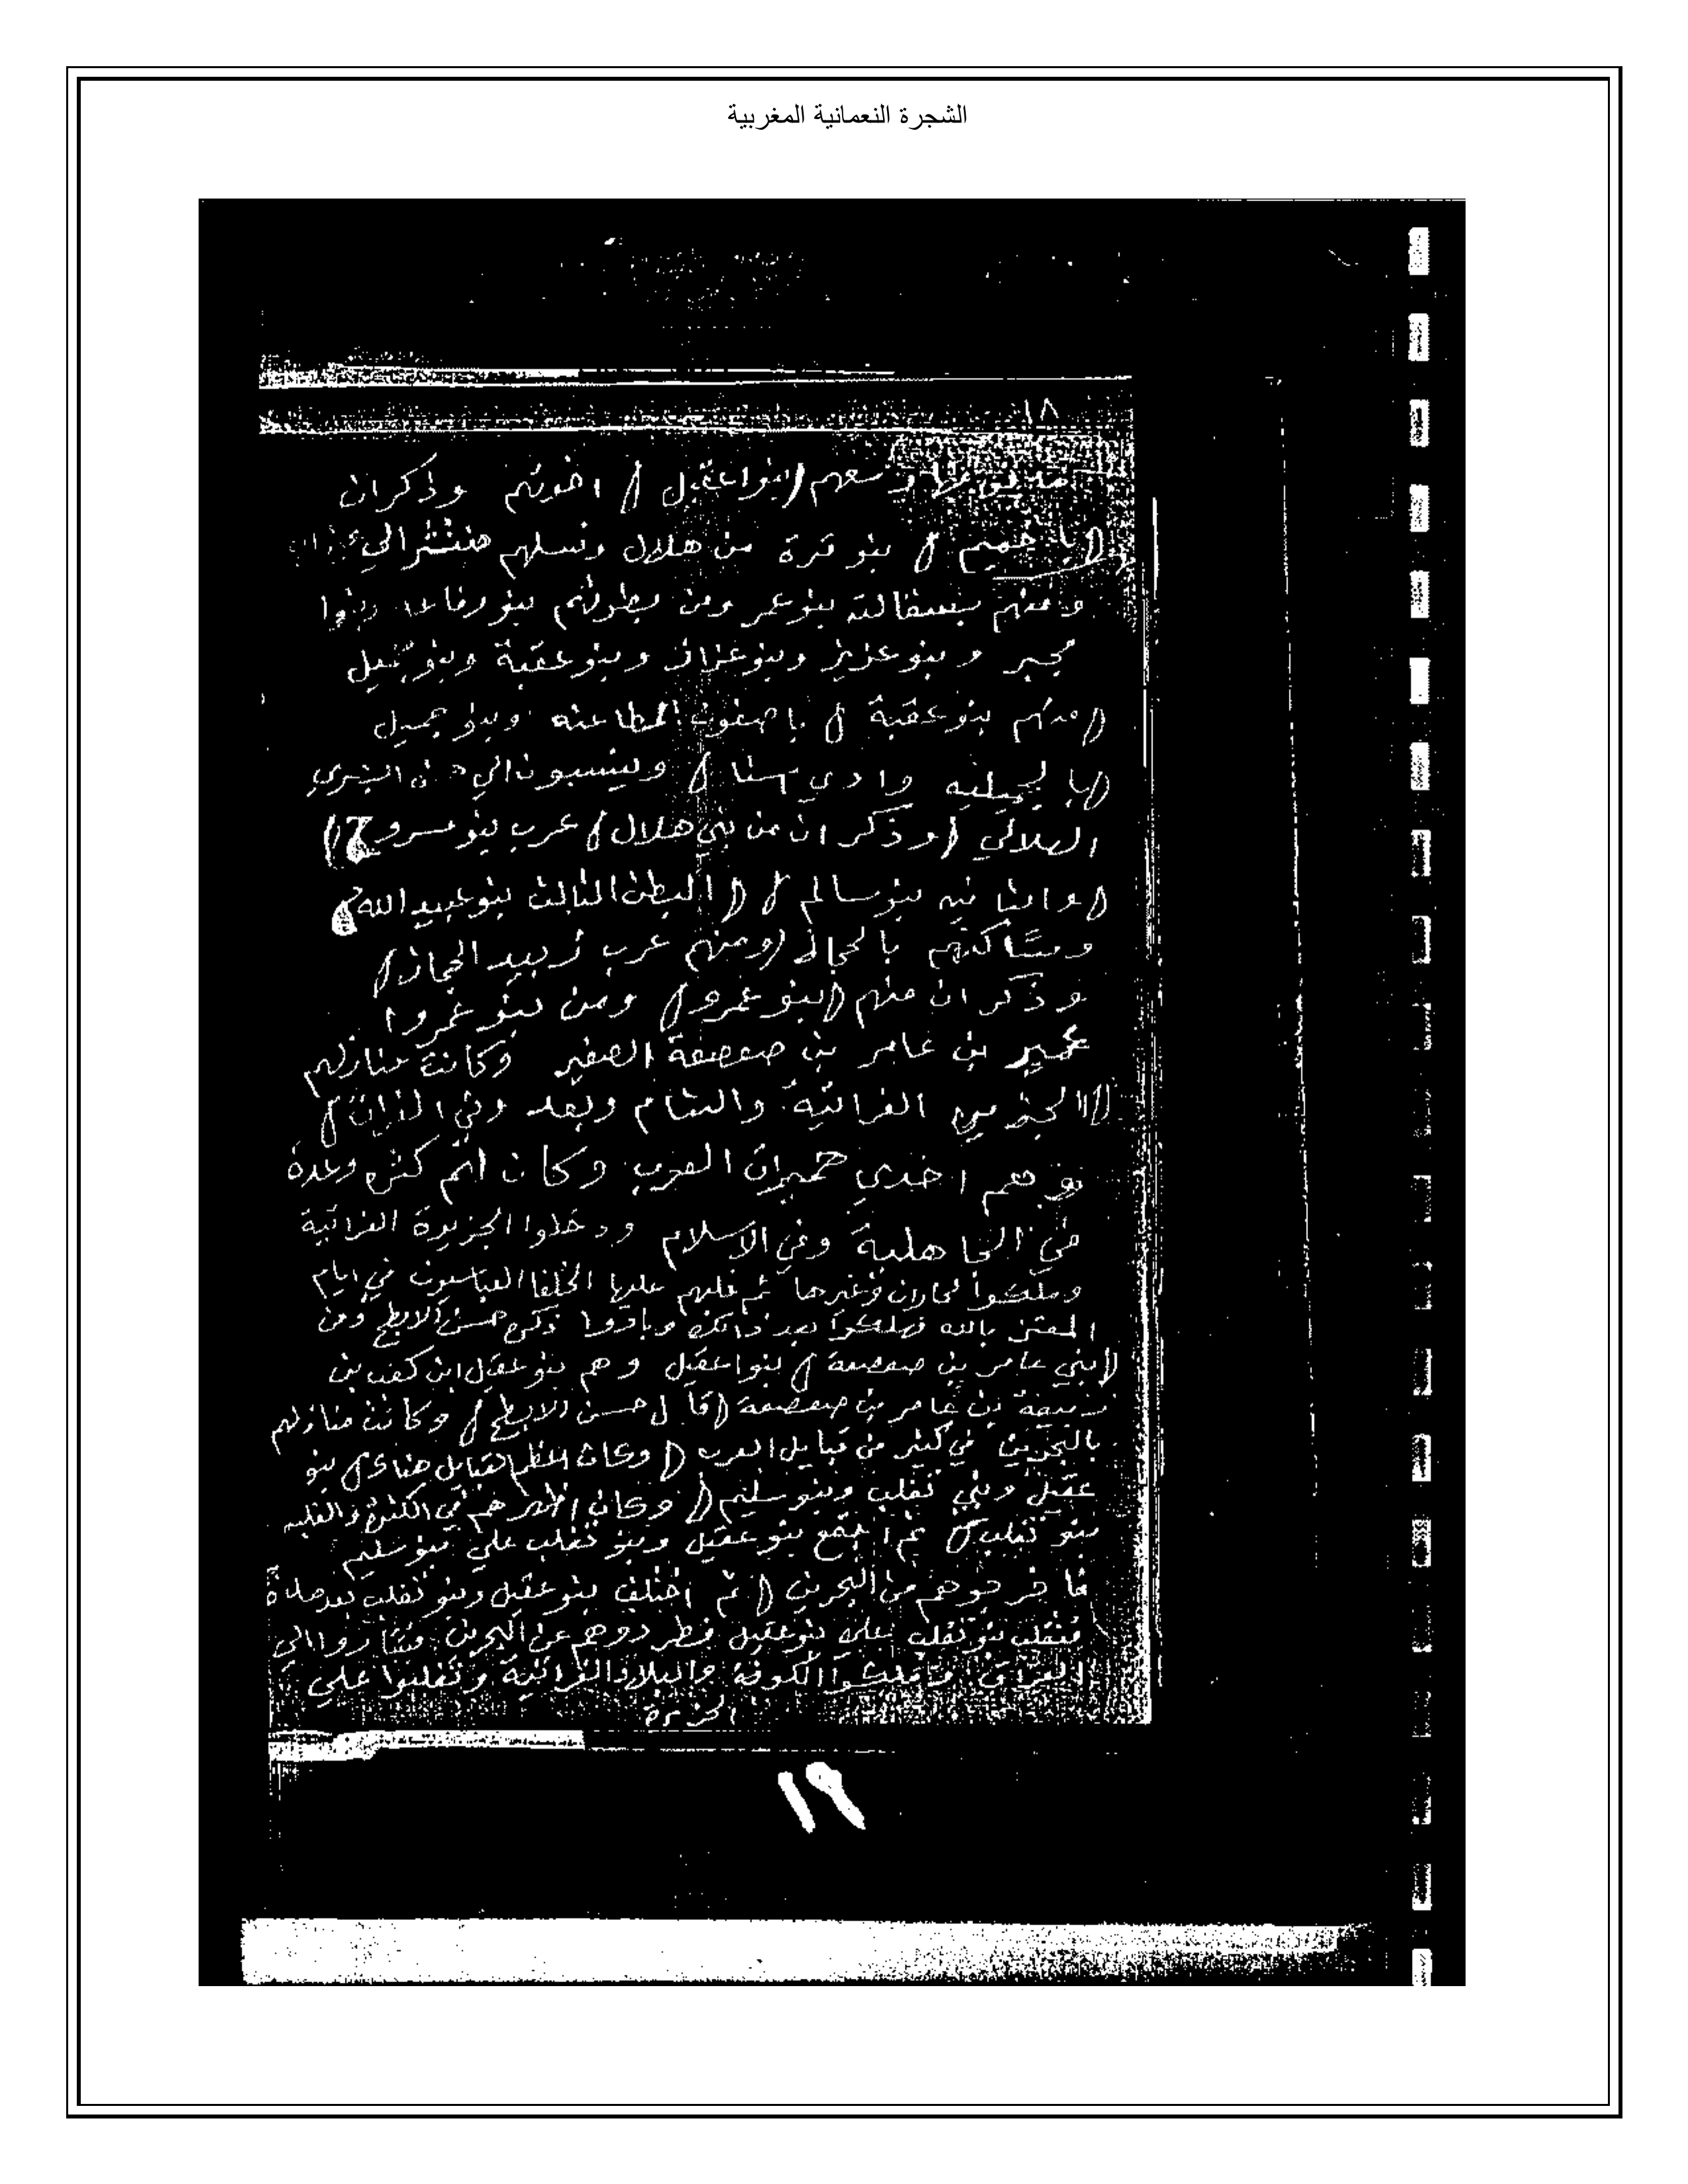 الشجرة النعمانية المغربية
١٨
معهم (بنوا عقيل) اخوتهم وذكران
بنو قرة من هلال ونسلهم منتشر الي
ومنهم بنو عمر ومن بطونهم بنو رفاعه وبنوا
مجير وبنو عزيز وبنو عقبة وبنو جميل
(منهم بنو عقبة) وبنو جميل
وادي وينسبون الي
الهلالي (وذكر ان من بني هلال) عرب بنو مسروح
بنو سالم) (البطن الثالث بنو عبيد الله)
ومساكنهم بالحجاز (ومنهم عرب زبيد الحجاز)
وذكر ان منهم (بنو عمروا) ومن بنو عمروا
عمير بن عامر بن صعصعة الصغير وكانة منازلهم
الفراتية والشام وبعد وفي
وهم احدي العرب وكان لهم كثر وعدة
في الجاهلية وفي الاسلام ودخلوا الجزيرة الفراتية
وملكوا وغيرها ثم غلبهم عليها الخلفا العباسيون في ايام
المعتز بالله فهلكوا بعد ذالك وبادوا ذكره حسن الابطح ومن
(بني عامر بن صعصعة) بنوا عقيل وهم بنو عقيل ابن كعب بن
ربيعة بن عامر بن صعصعة (قال حسن الابطح) وكانت منازلهم
بالبحرين في كثير من قبايل العرب (وكان اعظم القبايل هناك) بنو
عقيل وبني تغلب وبنو سليم (وكان اظهرهم في الكثرة والغلبه
بنو تغلب) ثم اجتمع بنو عقيل وبنو تغلب علي بنو سليم
فاخرجوهم من البحرين (ثم اختلف بنو عقيل وبنو تغلب بعد مدة
فتغلب بنو تغلب علي بنو عقيل فطردوهم عن البحرين فساروا الي
العراق وملكوا الكوفة والبلاد الفراتية وتغلبوا علي
الجزيرة
١٩